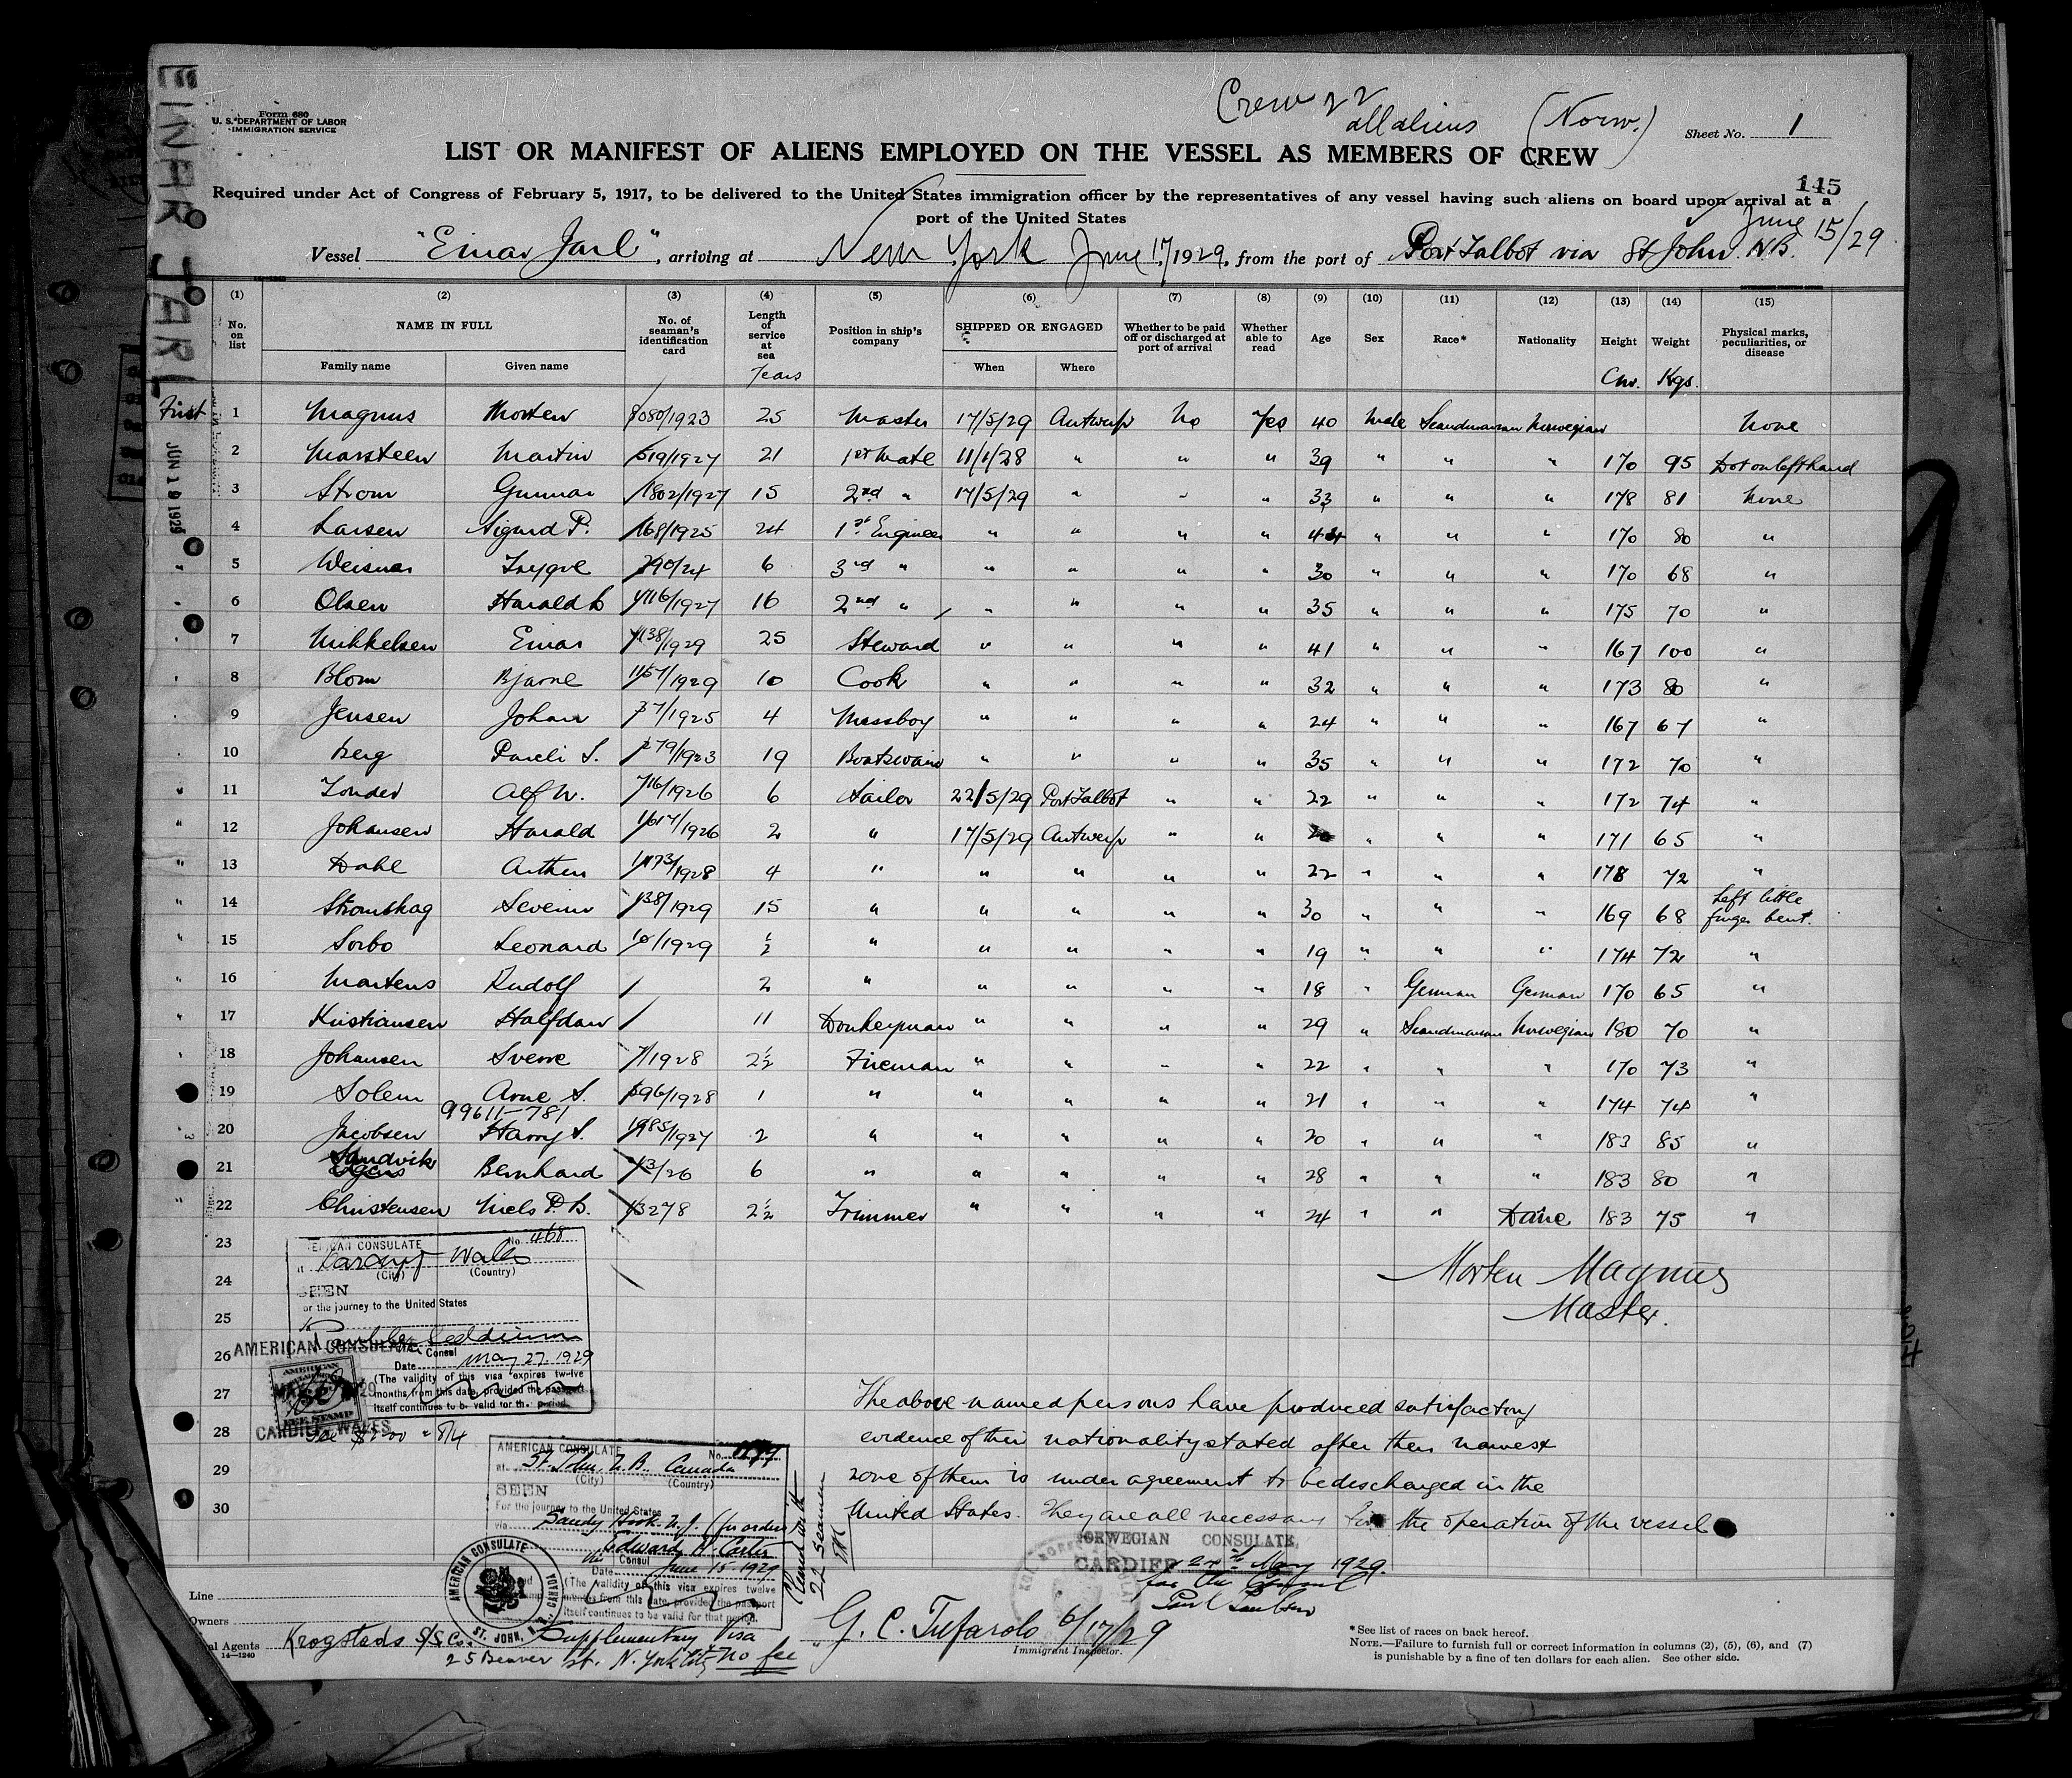 EINAR JARL
Form 680
U. S. DEPARTMENT OF LABOR
IMMIGRATION SERVICE
Crew 22
all aliens (Norw.)
Sheet No. 1
LIST OR MANIFEST OF ALIENS EMPLOYED ON THE VESSEL AS MEMBERS OF CREW
145
Required under Act of Congress of February 5, 1917, to be delivered to the United States immigration officer by the representatives of any vessel having such aliens on board upon arrival at a
port of the United States
June 15/29
Vessel "Einar Jarl", arriving at New York June 17/1929, from the port of Port Talbot via St John. N.B.
(1) (2) (3) (4) (5) (6) (7) (8) (9) (10) (11) (12) (13) (14) (15)
No. on list NAME IN FULL Family name Given name No. of seaman's identification card Length of service at sea Years Position in ship's company SHIPPED OR ENGAGED When Where Whether to be paid off or discharged at port of arrival Whether able to read Age Sex Race* Nationality Height Cm. Weight Kgs. Physical marks, peculiarities, or disease
First 1 Magnus Morten 8080/1923 25 Master 17/5/29 Antwerp No Yes 40 Male Scandinavian Norwegian None
2 Marsteen Martin 519/1927 21 1st Mate 11/1/28 " " " 39 " " " 170 95 Dot on left hand
3 Strom Gunnar 1802/1927 15 2nd " 17/5/29 " " " 33 " " " 178 81 None
4 Larsen Sigurd P. 168/1925 24 1st Engineer " " " " 44 " " " 170 80 "
5 Weisnar Trygve 290/24 6 3rd " " " " " 30 " " " 170 68 "
6 Olsen Harald L 1116/1927 16 2nd " " " " " 35 " " " 175 70 "
7 Mikkelsen Einar 1138/1929 25 Steward " " " " 41 " " " 167 100 "
8 Blom Bjarne 1157/1929 10 Cook " " " " 32 " " " 173 80 "
9 Jensen Johan 37/1925 4 Messboy " " " " 24 " " " 167 67 "
10 Berg Pareli S. 279/1923 19 Boatswain " " " " 35 " " " 172 70 "
11 Tonder Alf W. 716/1926 6 Sailor 22/5/29 Port Talbot " " 22 " " " 172 74 "
12 Johansen Harald 1617/1926 2 " 17/5/29 Antwerp " " " " " 171 65 "
13 Dahl Arthur 1173/1928 4 " " " " " 22 " " " 178 72 "
14 Stromskag Severin 138/1929 15 " " " " " 30 " " " 169 68 Left little finger bent.
15 Sorbo Leonard 10/1929 ½ " " " " " 19 " " " 174 72 "
16 Martens Rudolf 2 " " " " " 18 " German German 170 65 "
17 Kristiansen Halfdan 11 Donkeyman " " " " 29 " Scandinavian Norwegian 180 70 "
18 Johansen Sverre 7/1928 2½ Fireman " " " " 22 " " " 170 73 "
19 Solem Arne S. 596/1928 1 " " " " " 21 " " " 174 74 "
99611-781
20 Jacobsen Harry S. 1985/1927 2 " " " " " 20 " " " 183 85 "
21 Sandvik Bernhard 13/26 6 " " " " " 28 " " " 183 80 "
22 Christensen Niels P. B. 13278 2½ Trimmer " " " " 24 " " Dane 183 75 "
23
24
25
26
27
28
29
30
JUN 19 1929
Morten Magnus
Master.
AMERICAN CONSULATE No. 468
at Cardiff Wales
(City) (Country)
SEEN
For the journey to the United States
AMERICAN CONSULATE
Consul
Date May 27, 1929
(The validity of this visa expires twelve
months from this date, provided the passport
itself continues to be valid for that period.
AMERICAN
FEE STAMP
CARDIFF, WALES
The above named persons have produced satisfactory
evidence of their nationality stated after their names
none of them is under agreement to be discharged in the
United States. They are all necessary for the operation of the vessel
NORWEGIAN CONSULATE,
CARDIFF, May 1929.
for the Consul
AMERICAN CONSULATE No.
at St. John, N.B. Canada
(City) (Country)
SEEN
For the journey to the United States
via Sandy Hook N.J. (for orders
Edward H. Carter
Vice Consul
Date June 15-1929
(The validity of this visa expires twelve
months from this date, provided the passport
itself continues to be valid for that period.
22 seamen
AMERICAN CONSULATE
ST. JOHN, N. B., CANADA
Supplementary Visa
no fee
Line
Owners
Local Agents Krogstads S/S Co.
25 Beaver St. N. York City
14-1240
G. C. Tufarolo 6/17/29
Immigrant Inspector.
*See list of races on back hereof.
NOTE.—Failure to furnish full or correct information in columns (2), (5), (6), and (7)
is punishable by a fine of ten dollars for each alien. See other side.